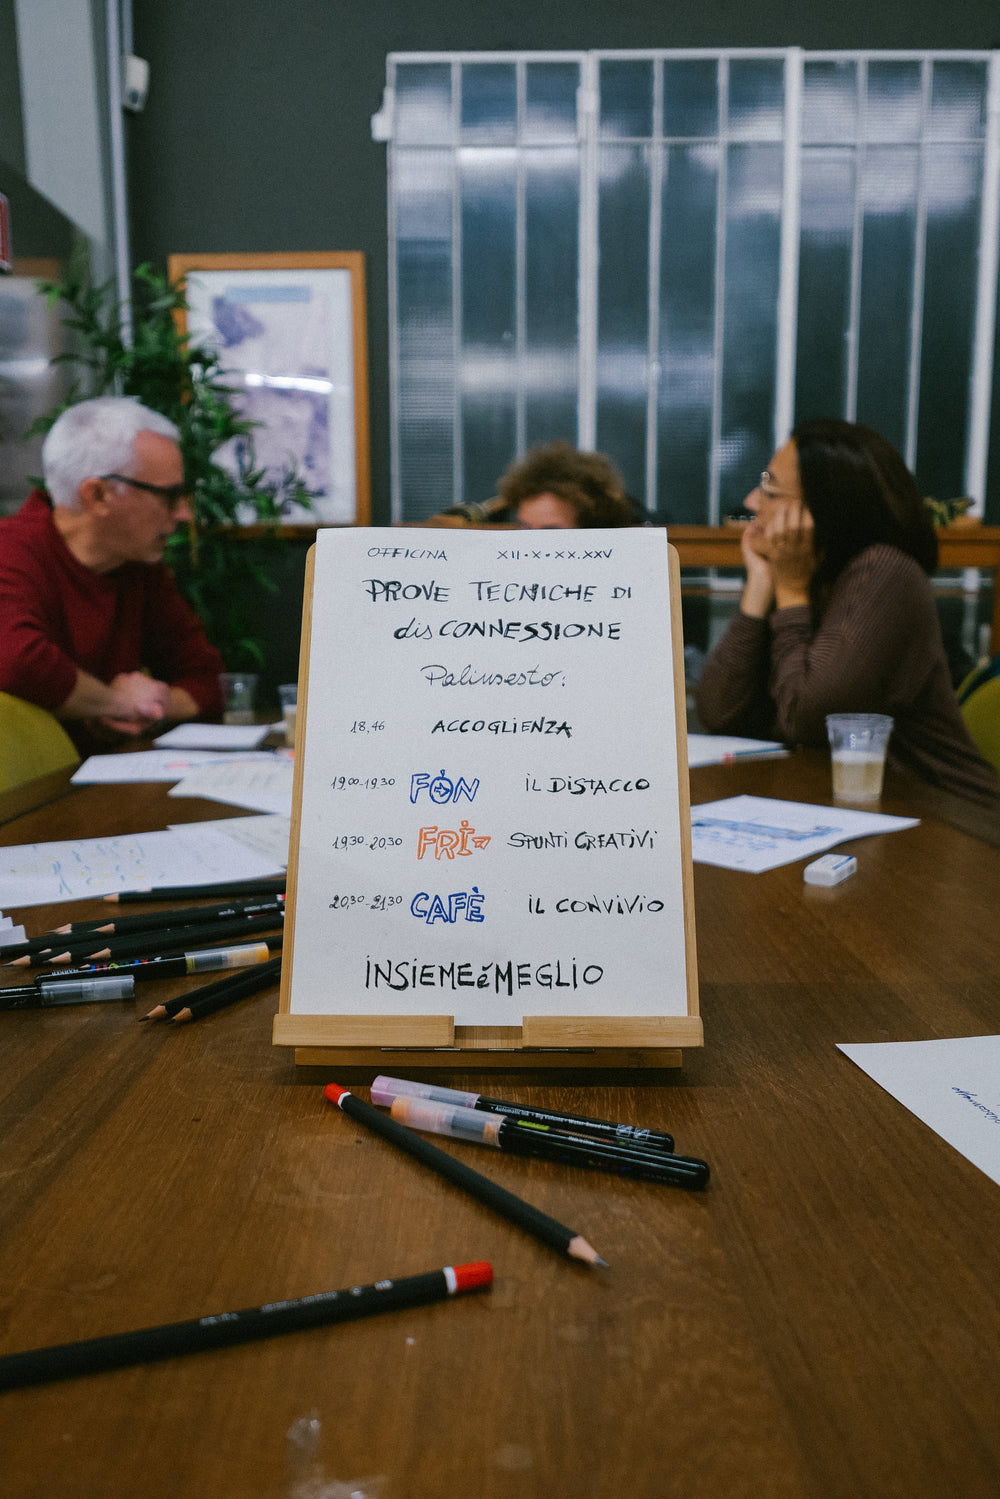 OFFICINA XII·X·XX.XXV
PROVE TECNICHE DI
dis CONNESSIONE
Palinsesto:
18,46 ACCOGLIENZA
19,00-19,30 FÒN IL DISTACCO
19,30-20,30 FRÌ SPUNTI CREATIVI
20,30-21,30 CAFÈ IL CONVIVIO
INSIEME é MEGLIO